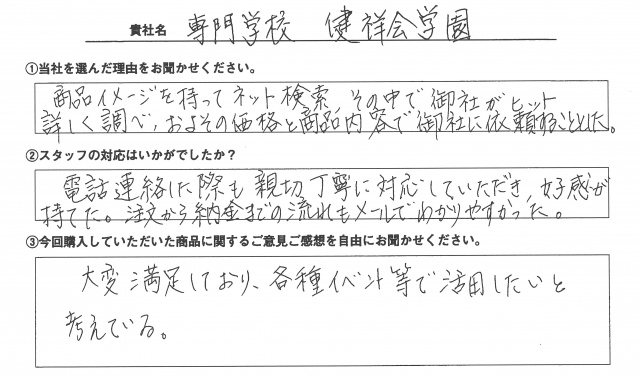 貴社名 専門学校 健祥会学園
①当社を選んだ理由をお聞かせください。
商品イメージを持ってネット検索、その中で御社がヒット
詳しく調べ、およその価格と商品内容で御社に依頼することとした。
②スタッフの対応はいかがでしたか？
電話連絡した際も親切丁寧に対応していただき、好感が
持てた。注文から納金までの流れもメールでわかりやすかった。
③今回購入していただいた商品に関するご意見ご感想を自由にお聞かせください。
大変満足しており、各種イベント等で活用したいと
考えている。